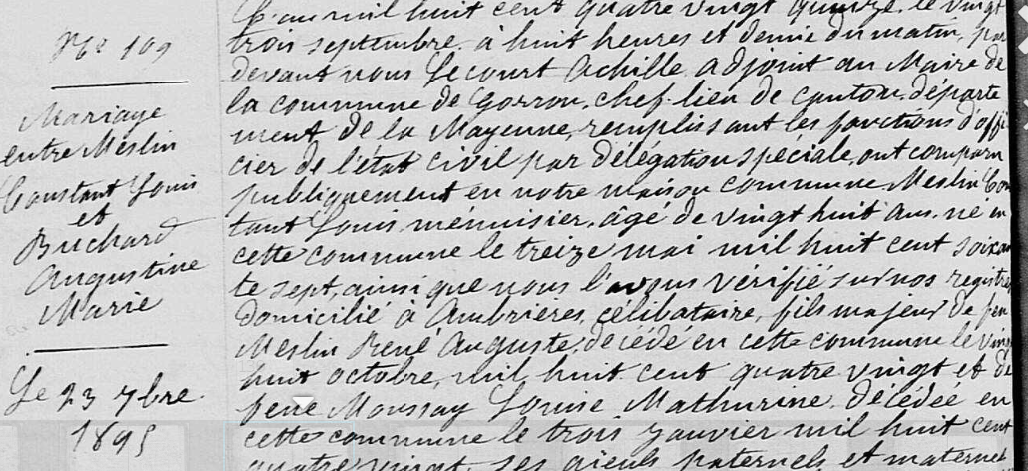 N° 109
Mariage
entre Meslin
Constant Louis
et
Buchard
Augustine
Marie
Le 23 7bre
1895
L'an mil huit cent quatre vingt quinze, le vingt
trois septembre, à huit heures et demie du matin, par
devant nous Lecourt Achille adjoint au Maire de
la commune de Gorron, chef-lieu de canton, départe
ment de la Mayenne, remplissant les fonctions d'offi
cier de l'état civil par délégation spéciale, ont comparu
publiquement en notre maison commune Meslin Cons
tant Louis ménuisier, âgé de vingt huit ans, né en
cette commune le treize mai mil huit cent soixan
te sept, ainsi que nous l'avons vérifié sur nos registres
domicilié à Ambrières, célibataire, fils majeur de feu
Meslin René Auguste, décédé en cette commune le vingt
huit octobre, mil huit cent quatre vingt et de
feue Moussay Louise Mathurine décédée en
cette commune le trois janvier mil huit cent
quatre vingt, ses aieuls paternels et maternels